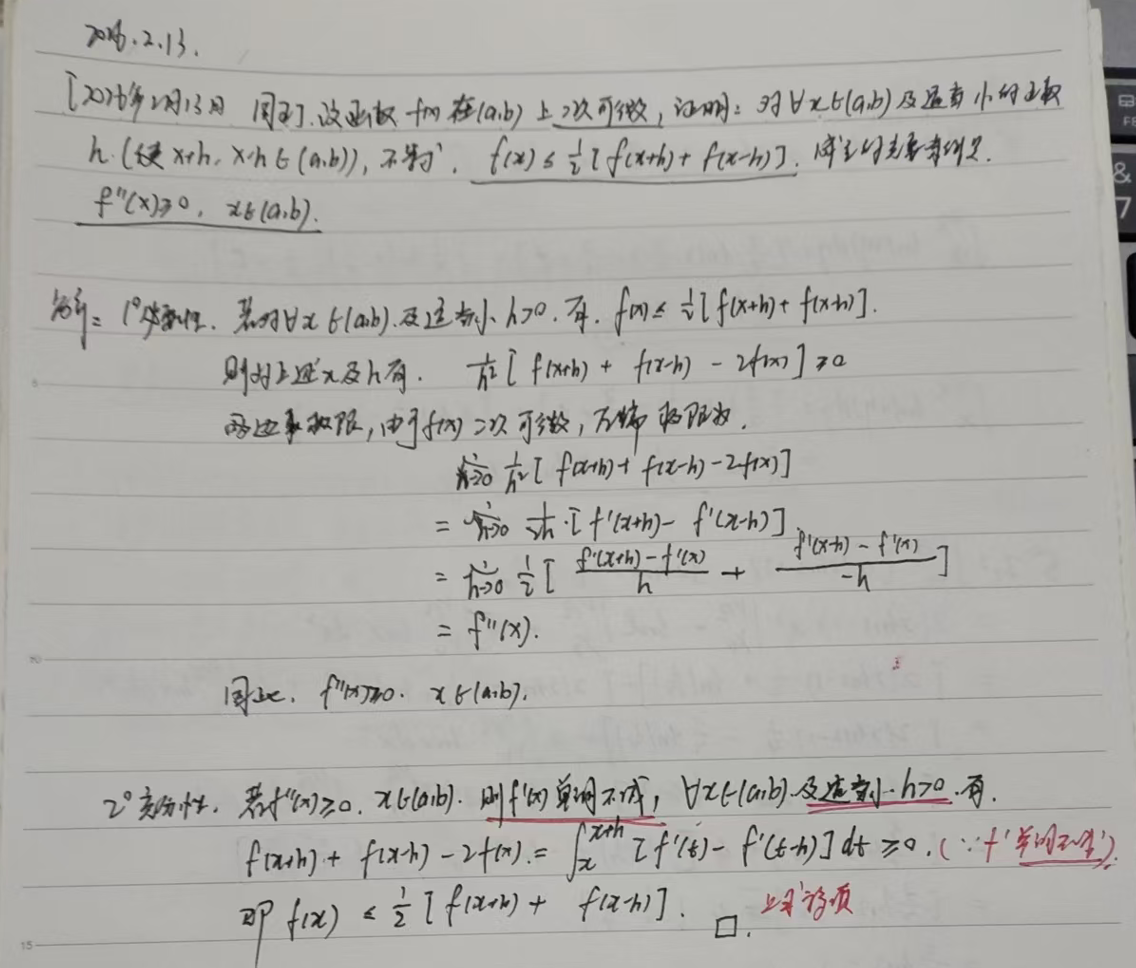 2026.2.13.
[2026年2月13日 周五].设函数 f(x) 在(a,b) 上二次可微，证明：对∀x∈(a,b)及适当小的正数
h.(使 x+h, x-h∈(a,b)), 不等式. f(x) ≤ ½[f(x+h)+f(x-h)]. 成立的充要条件是.
f''(x)≥0, x∈(a,b).
1° 必要性. 若对∀x∈(a,b).及适当小 h>0. 有. f(x) ≤ ½[f(x+h)+f(x-h)].
则对上述x及h有. 1/h²[f(x+h) + f(x-h) - 2f(x)] ≥ 0
两边取极限, 由于f(x)二次可微, 左端极限为.
lim h→0 1/h² [f(x+h)+f(x-h)-2f(x)]
= lim h→0 1/2h·[f'(x+h)-f'(x-h)]
= lim h→0 ½[ (f'(x+h)-f'(x))/h + (f'(x-h)-f'(x))/-h ]
= f''(x).
因此. f''(x)≥0. x∈(a,b).
2° 充分性. 若f''(x)≥0. x∈(a,b). 则f'(x)单调不减, ∀x∈(a,b).及适当小.h>0.有.
f(x+h)+f(x-h)-2f(x).= ∫ₓˣ⁺ʰ [f'(t)-f'(t-h)]dt ≥0. (∵f'单调不减).
即 f(x) ≤ ½[f(x+h)+ f(x-h)]. □.